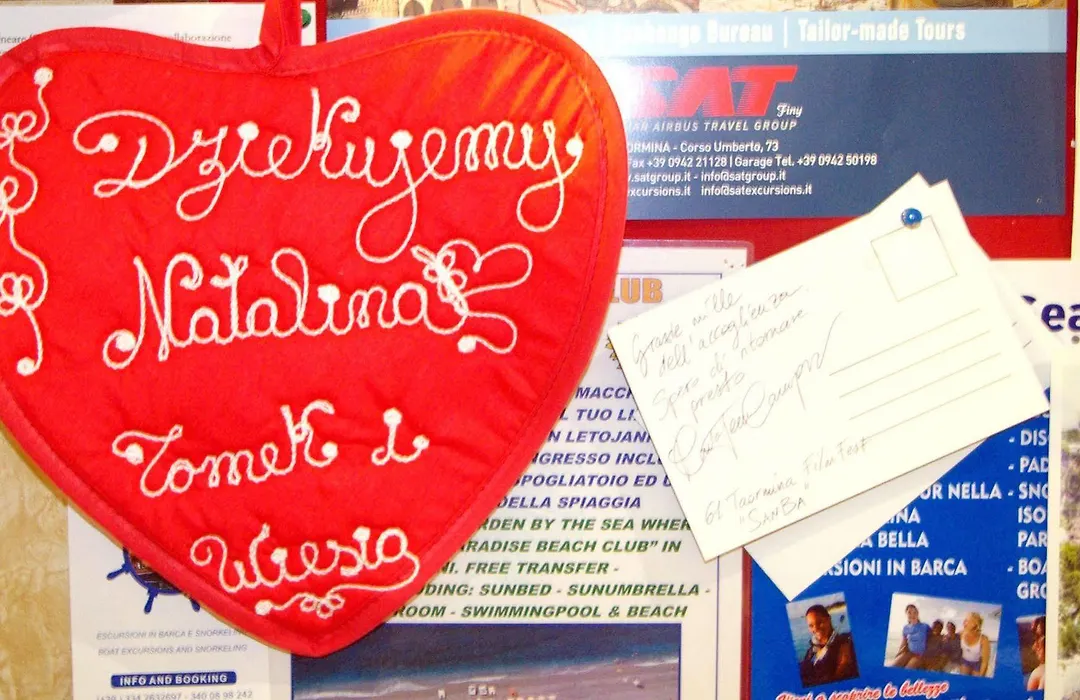 Dziekujemy
Natalina
Tomek i
Wiesia
Bureau | Tailor-made Tours
SAT
Finy
AIRBUS TRAVEL GROUP
Corso Umberto, 73
Fax +39 0942 21128 | Garage Tel. +39 0942 50198
.satgroup.it - info@satgroup.it
excursions.it info@satexcursions.it
Grazie mille
dell'accoglienza.
Spero di ritornare
presto
61 Taormina FilmFest
"SanBa"
CLUB
MACCH
L TUO LI
N LETOJANN
INGRESSO INCL
SPOGLIATOIO ED U
DELLA SPIAGGIA
RDEN BY THE SEA WHER
PARADISE BEACH CLUB" IN
NI. FREE TRANSFER -
DING: SUNBED - SUNUMBRELLA -
ROOM - SWIMMINGPOOL & BEACH
ESCURSIONI IN BARCA E SNORKELING
BOAT EXCURSIONS AND SNORKELING
INFO AND BOOKING
+39 334 2632697 - 340 08 98 242
Sea
UR NELLA
BELLA
RSIONI IN BARCA
- DIS
- PAD
- SNO
ISO
PAR
- BOA
GRO
a scoprire le bellezze